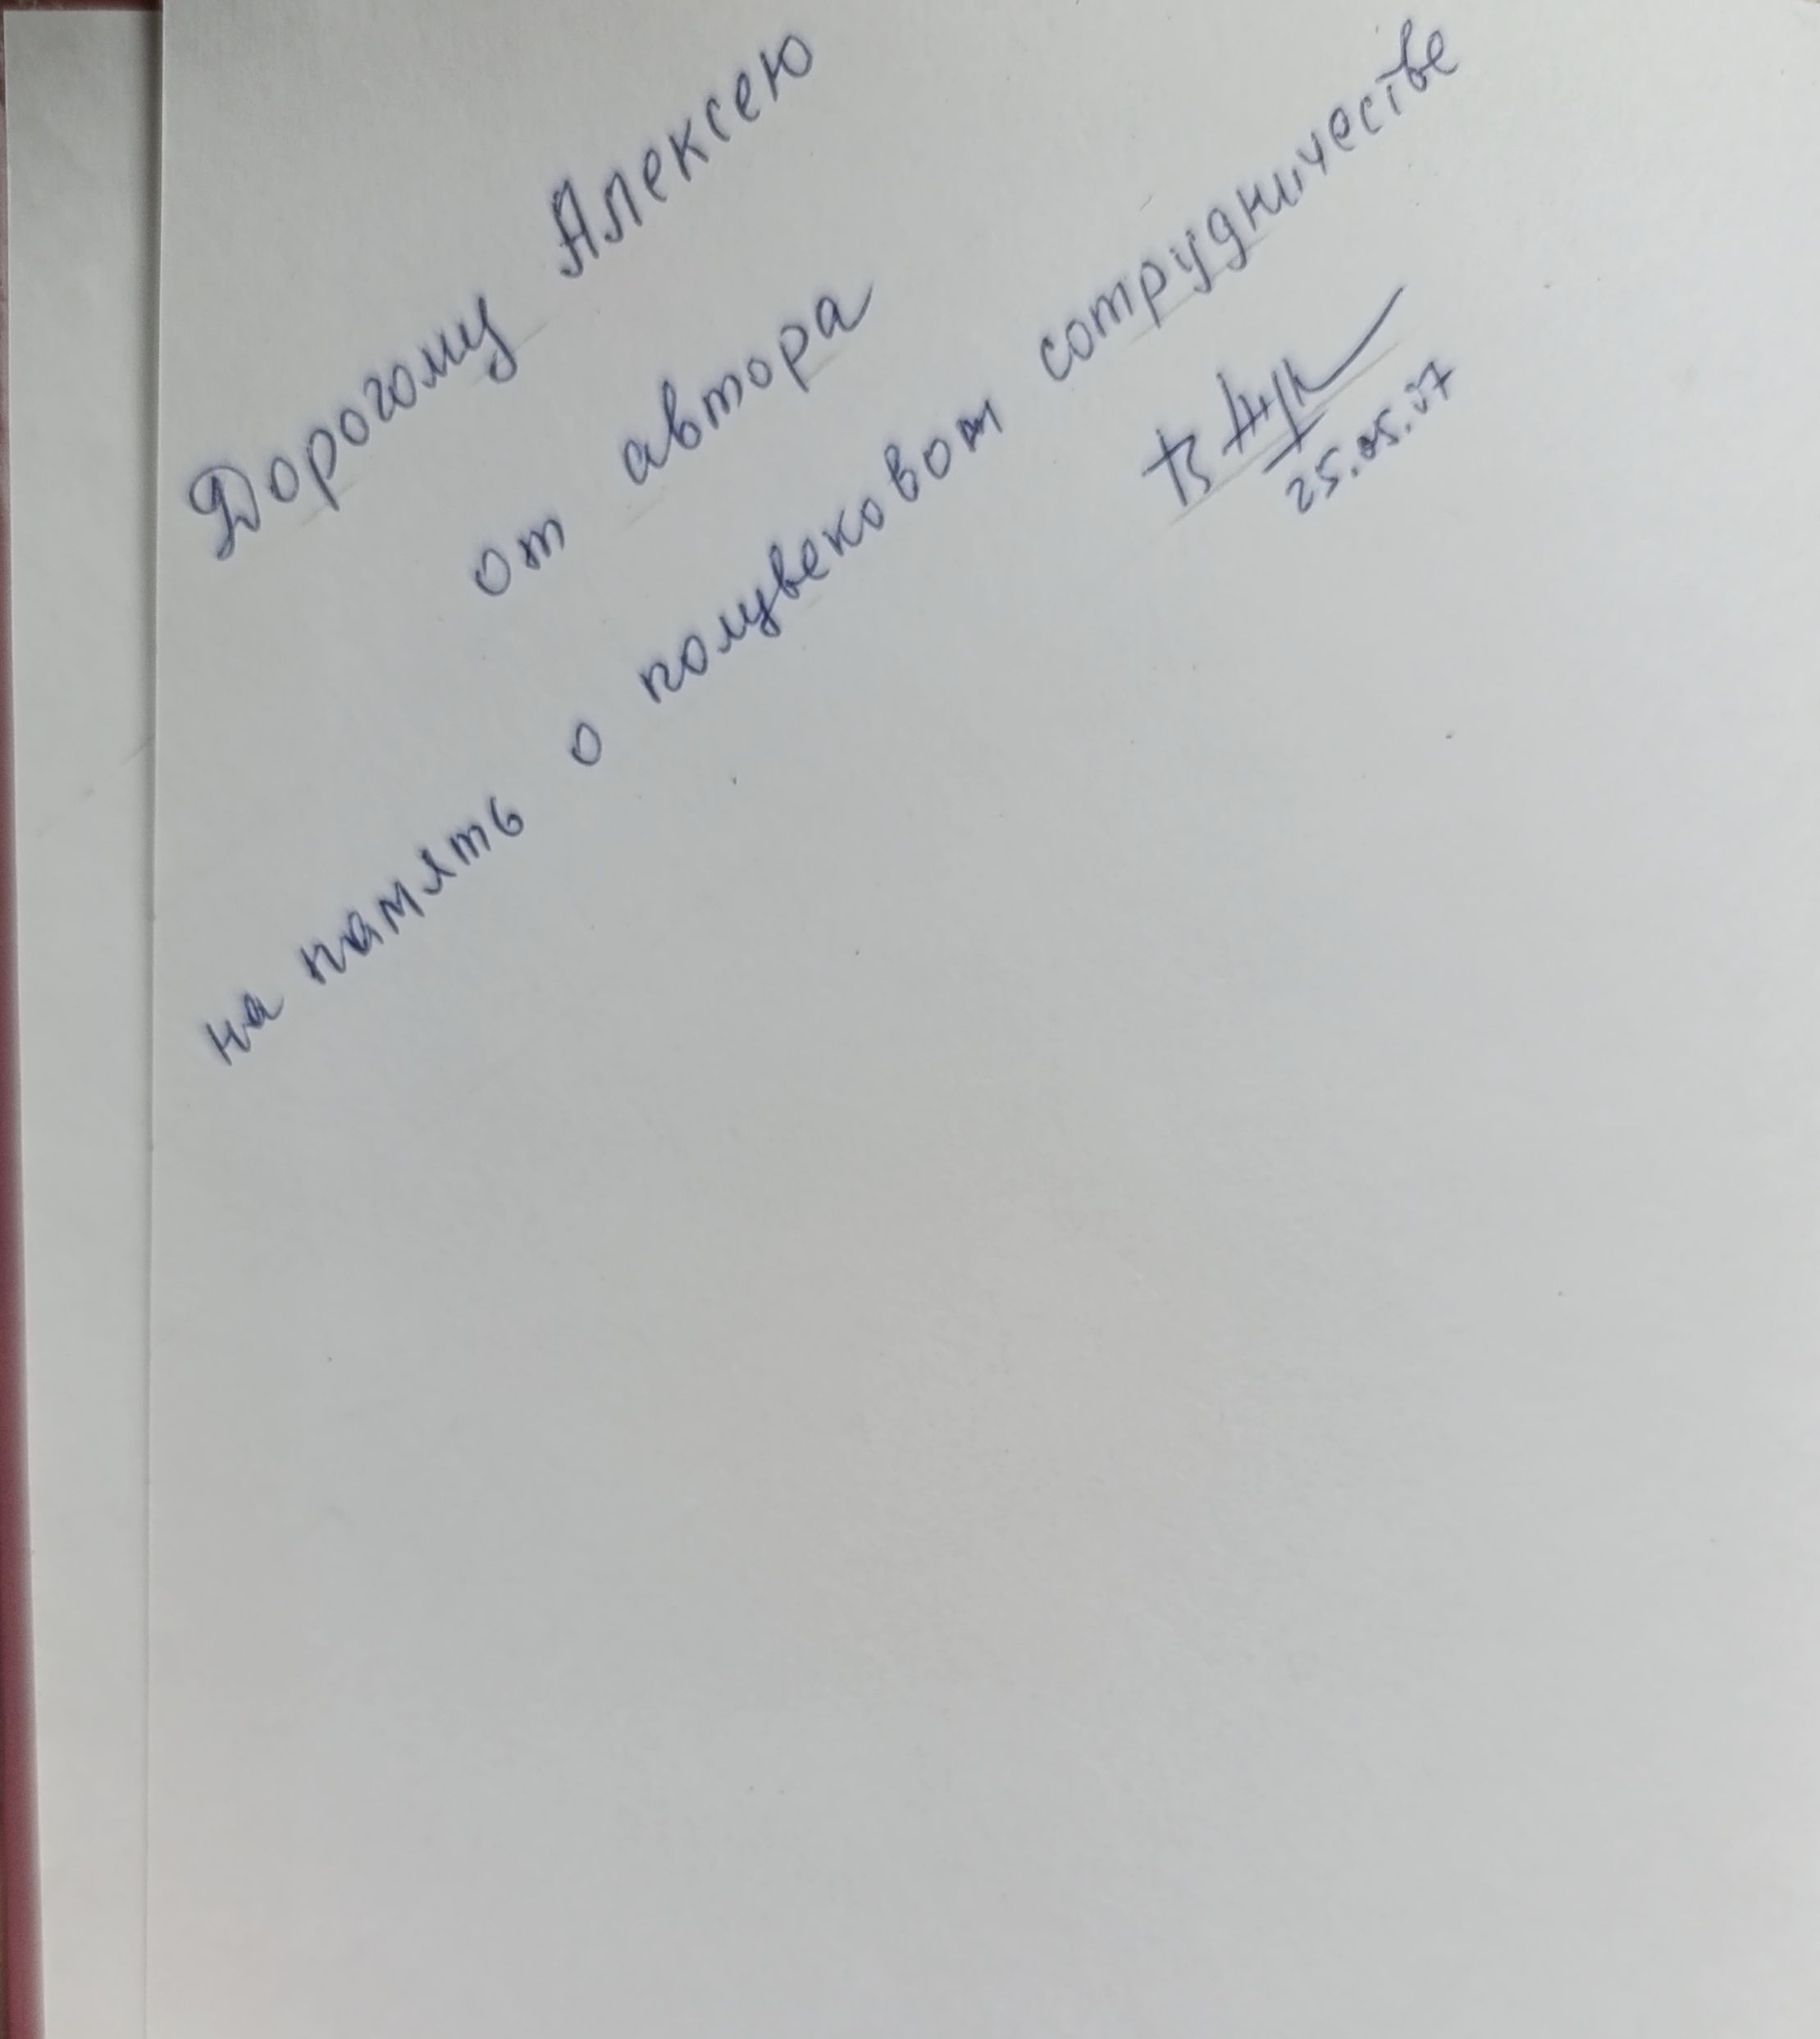 Дорогому Алексею
от автора
на память о полувековом сотрудничестве
25.05.07